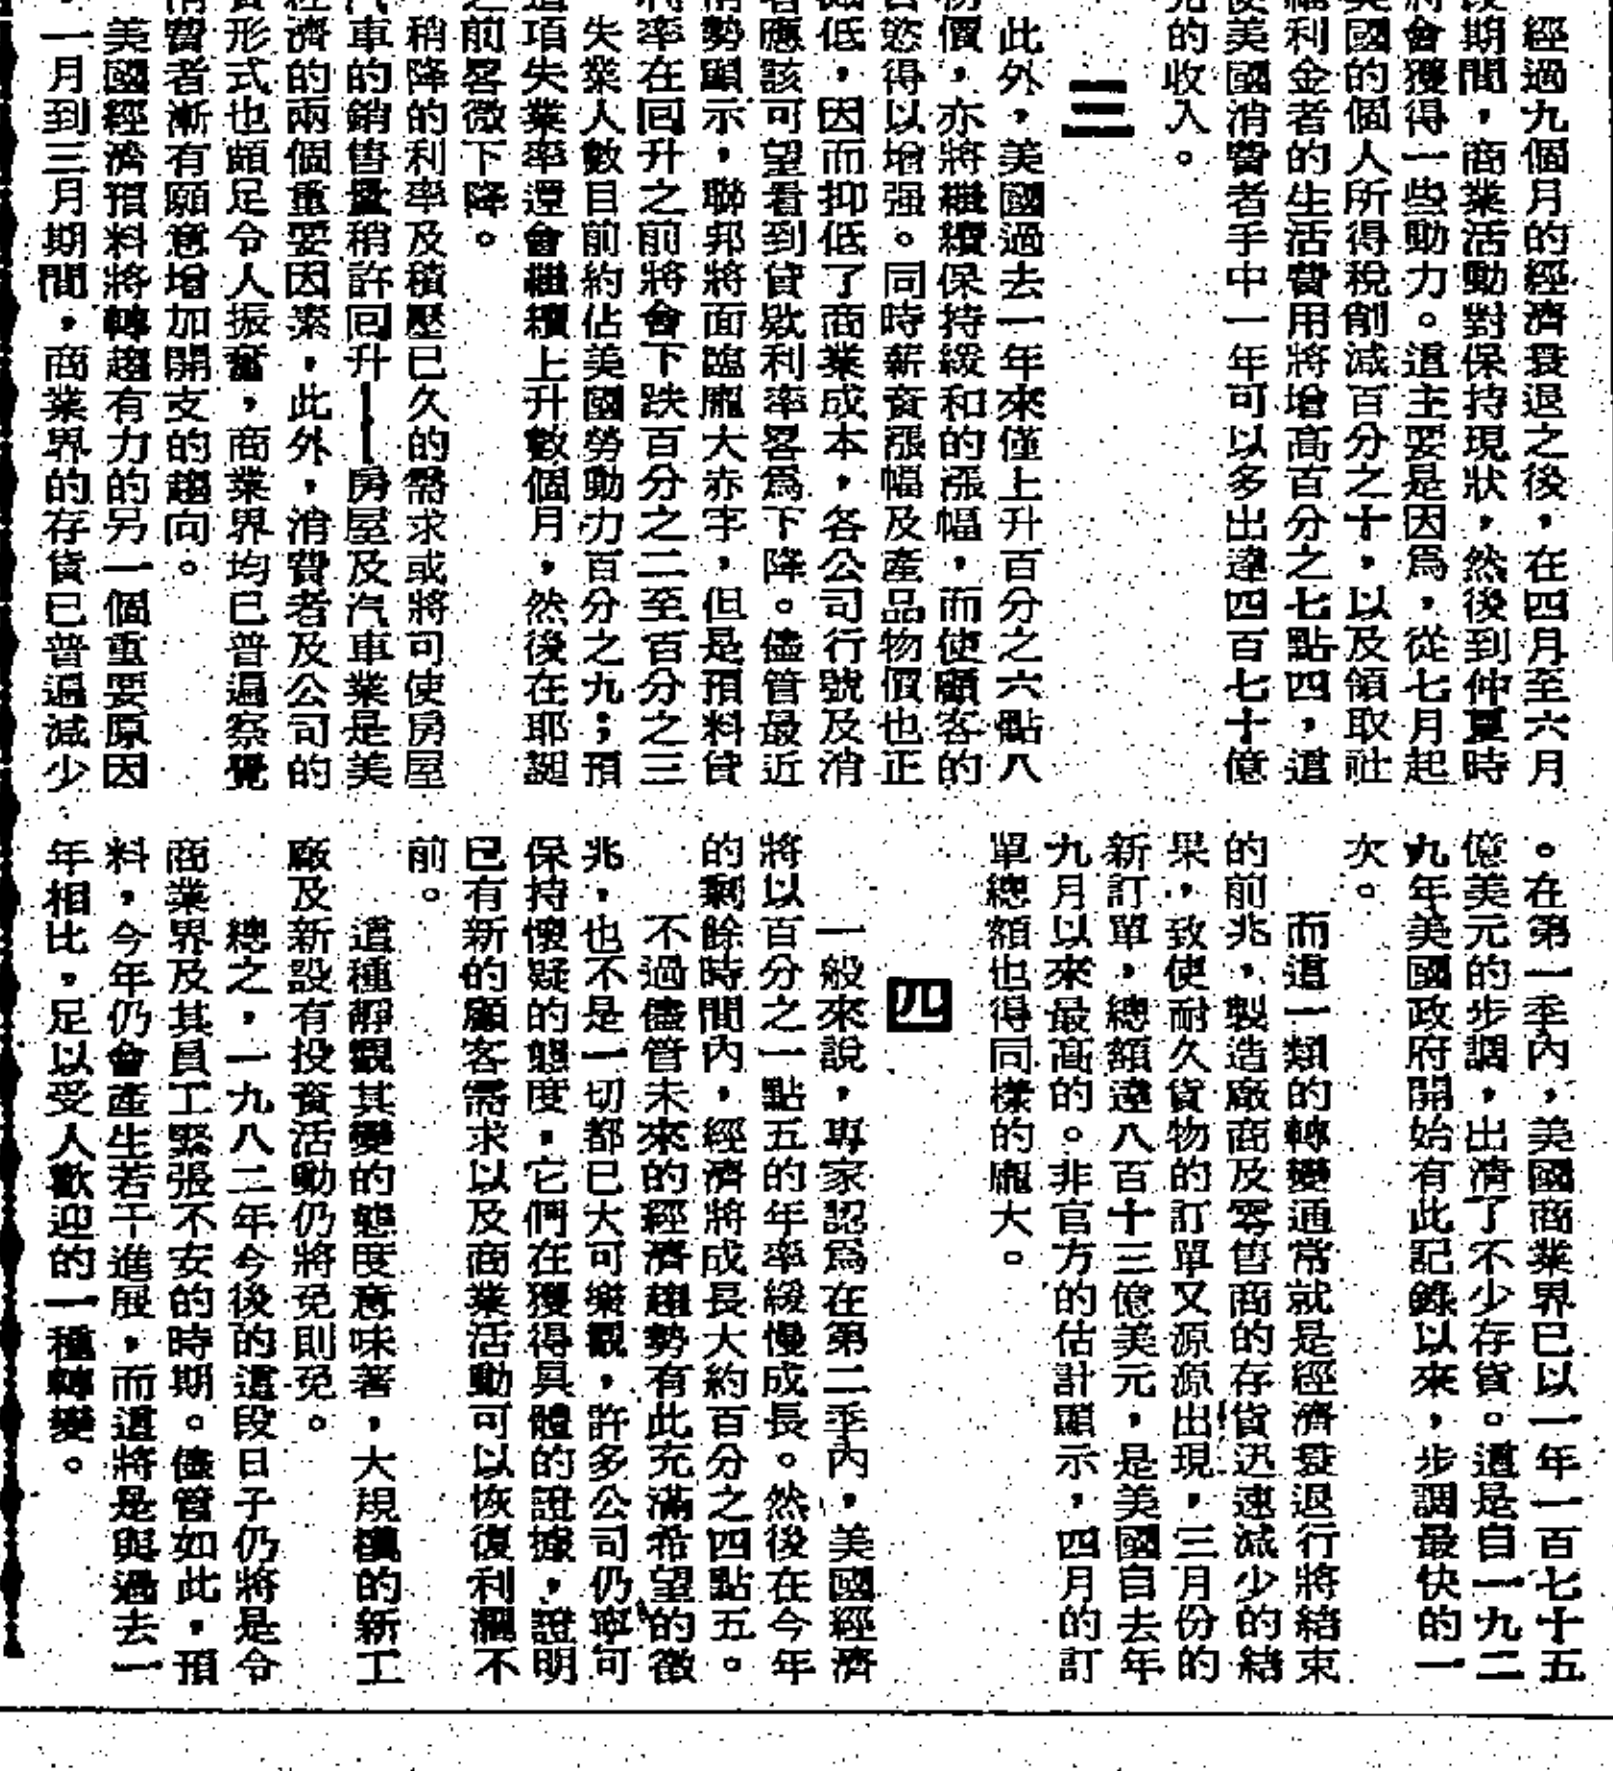 經過九個月的經濟衰退之後，在四月至六月
期間，商業活動對保持現狀，然後到仲夏時
將會獲得一些動力。這主要是因爲，從七月起
美國的個人所得稅削減百分之十，以及領取社
福利金者的生活費用將增高百分之七點四，這
使美國消費者手中一年可以多出達四百七十億
元的收入。
三
此外，美國過去一年來僅上升百分之六點八
物價，亦將繼續保持緩和的漲幅，而使顧客的
慾得以增强。同時薪資漲幅及產品物價也正
低，因而抑低了商業成本，各公司行號及消
者應該可望看到貸款利率畧爲下降。儘管最近
情勢顯示，聯邦將面臨龐大赤字，但是預料貸
利率在回升之前將會下跌百分之二至百分之三
失業人數目前約佔美國勞動力百分之九；預
這項失業率還會繼續上升數個月，然後在耶誕
之前畧微下降。
稍降的利率及積壓已久的需求或將可使房屋
汽車的銷售量稍許回升——房屋及汽車業是美
經濟的兩個重要因素，此外，消費者及公司的
資形式也頗足令人振奮，商業界均已普遍察覺
消費者漸有願意增加開支的趨向。
美國經濟預料將轉趨有力的另一個重要原因
一月到三月期間，商業界的存貨已普遍減少
。在第一季內，美國商業界已以一年一百七十五
億美元的步調，出濟了不少存貨。這是自一九二
九年美國政府開始有此記錄以來，步調最快的一
次。
而這一類的轉變通常就是經濟衰退行將結束
的前兆，製造廠商及零售商的存貨迅速減少的結
果，致使耐久貨物的訂單又源源出現，三月份的
新訂單，總額達八百十三億美元，是美國自去年
九月以來最高的。非官方的估計顯示，四月的訂
單總額也得同樣的龐大。
四
一般來說，專家認爲在第二季內，美國經濟
將以百分之一點五的年率緩慢成長。然後在今年
的剩餘時間內，經濟將成長大約百分之四點五。
不過儘管未來的經濟趨勢有此充滿希望的徵
兆，也不是一切都已大可樂觀，許多公司仍寧可
保持懷疑的態度，它們在獲得具體的證據，證明
已有新的顧客需求以及商業活動可以恢復利潤不
前。
這種靜觀其變的態度意味著，大規模的新工
廠及新設有投資活動仍將免則免。
總之，一九八二年今後的這段日子仍將是令
商業界及其員工緊張不安的時期。儘管如此，預
料，今年仍會產生若干進展，而這將是與過去一
年相比，足以受人歡迎的一種轉變。